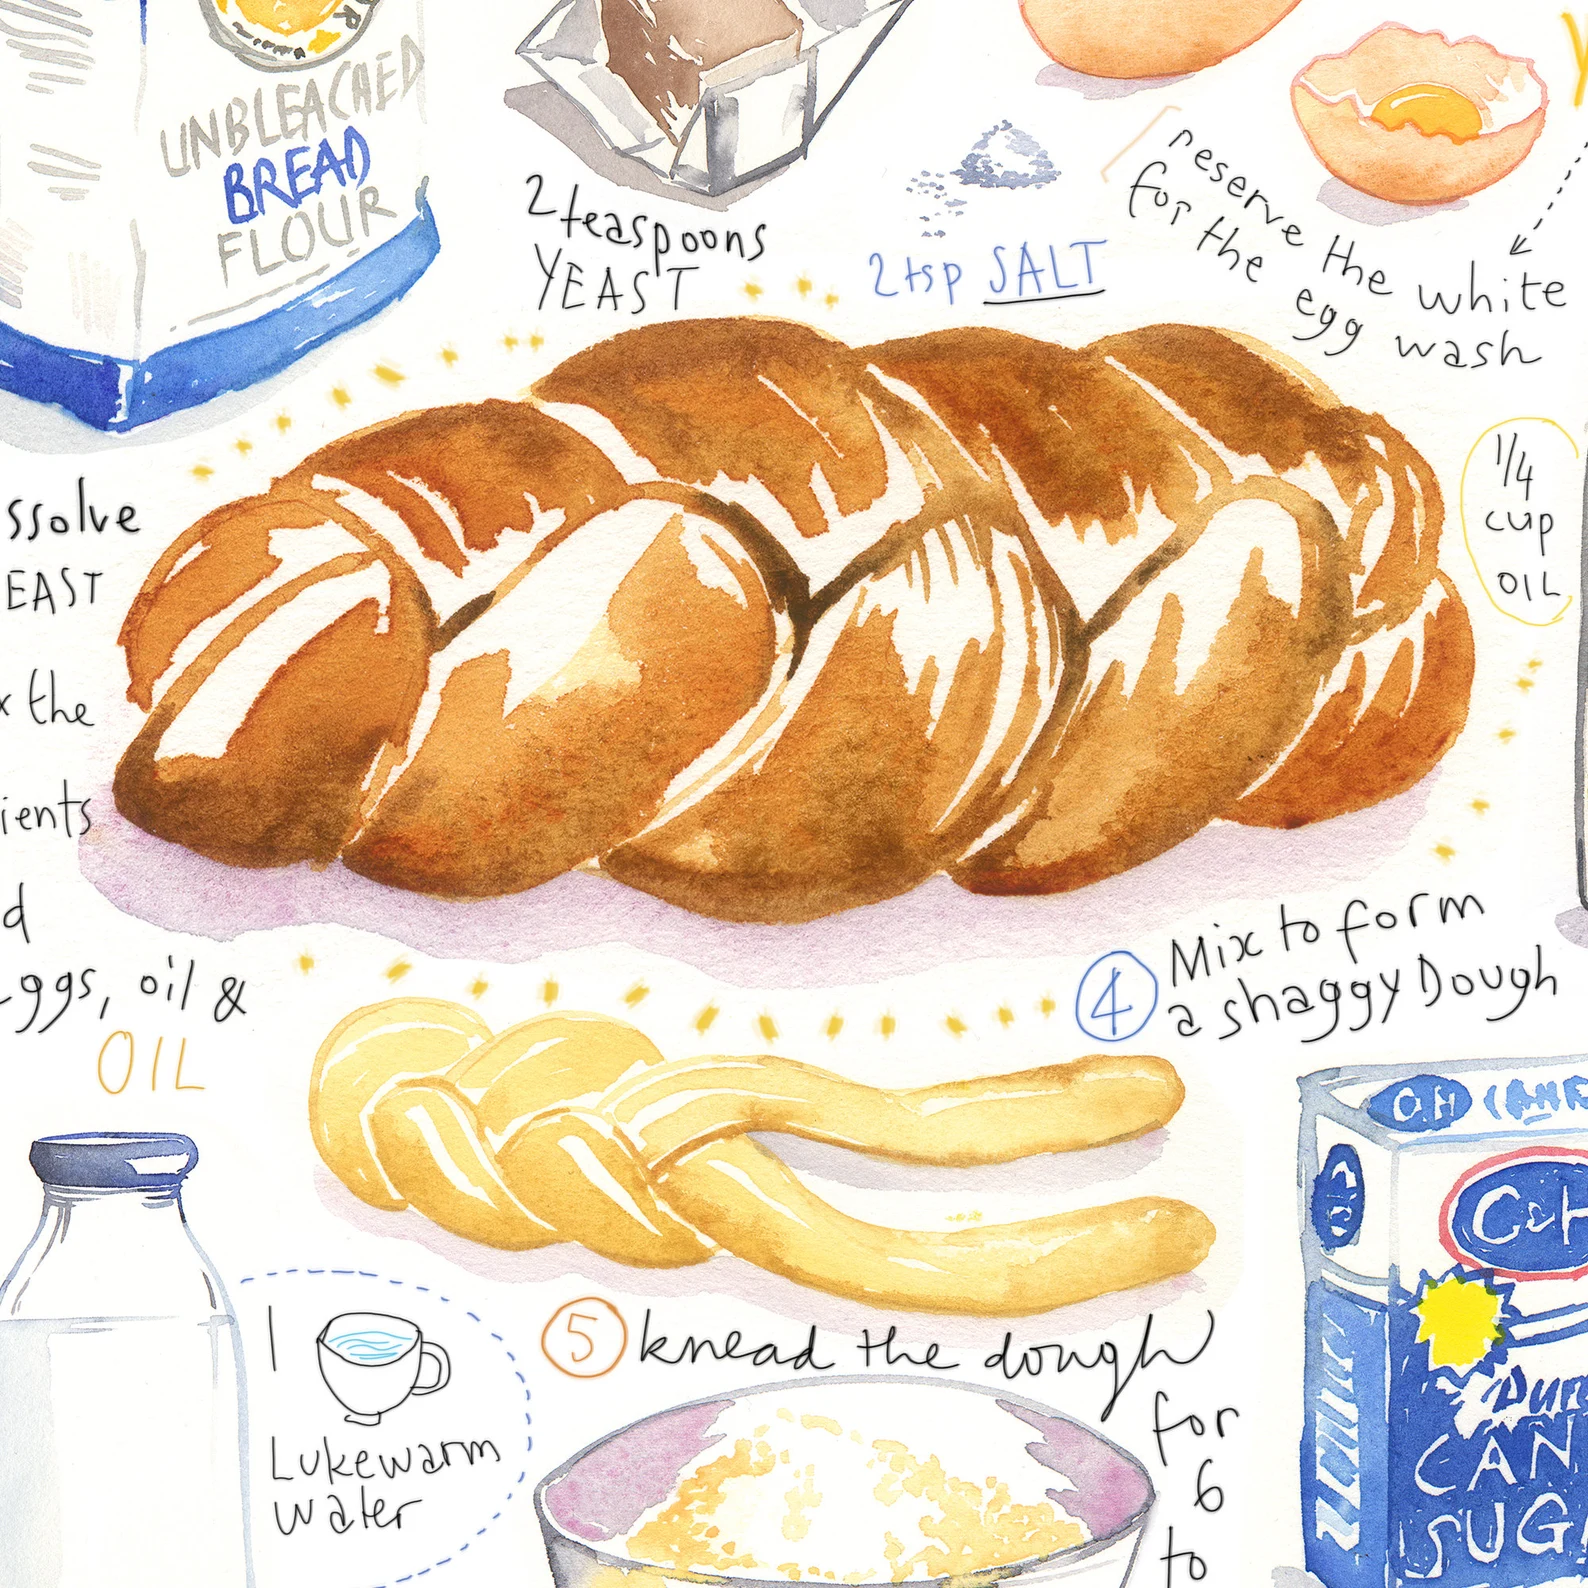 UNBLEACHED
BREAD
FLOUR
2 teaspoons
YEAST
2 tsp SALT
reserve the white
for the egg wash
1/4
cup
OIL
the
eggs, oil &
OIL
4 Mix to form
a shaggy Dough
1
Lukewarm
water
5 knead the dough
for
6
to
C&H